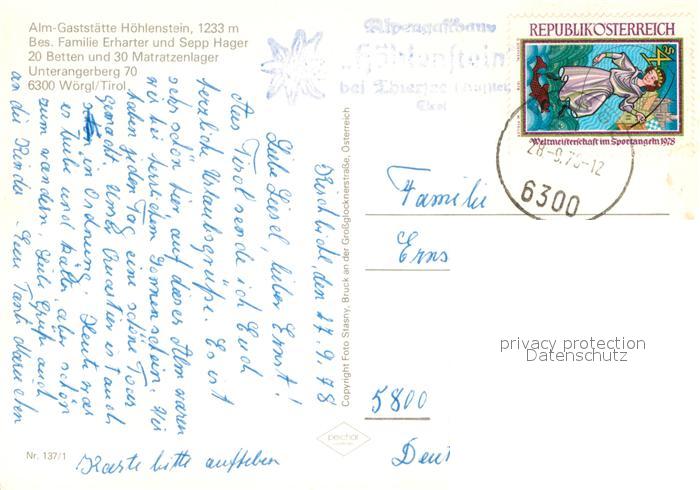 Alm-Gaststätte Höhlenstein, 1233 m
Bes. Familie Erharter und Sepp Hager
20 Betten und 30 Matratzenlager
Unterangerberg 70
6300 Wörgl/Tirol
Alpengasthaus
Höhlenstein
bei Thiersee
Tirol
REPUBLIK ÖSTERREICH
S4
Weltmeisterschaft im Sportangeln 1978
28.-9.78-12
6300
den 17.9.78
Liebe Liesel, lieber Ernst!
Aus Tirol sende ich Euch
herzliche Urlaubsgrüße. Es ist
sehr schön hier auf dieser Alm waren
wir bei Sonnenschein. Wir
haben jeden Tag eine schöne Tour
gemacht. Unser Quartier ist auch
in Ordnung. Heute war
es trübe und kälter, aber schön
zum wandern. Liebe Grüße auch
an die Kinder. Eure Tante
Karte bitte aufheben
Copyright Foto Stasny, Bruck an der Großglocknerstraße, Österreich
Familie
Erns
privacy protection
Datenschutz
5800
peichar
Nr. 137/1